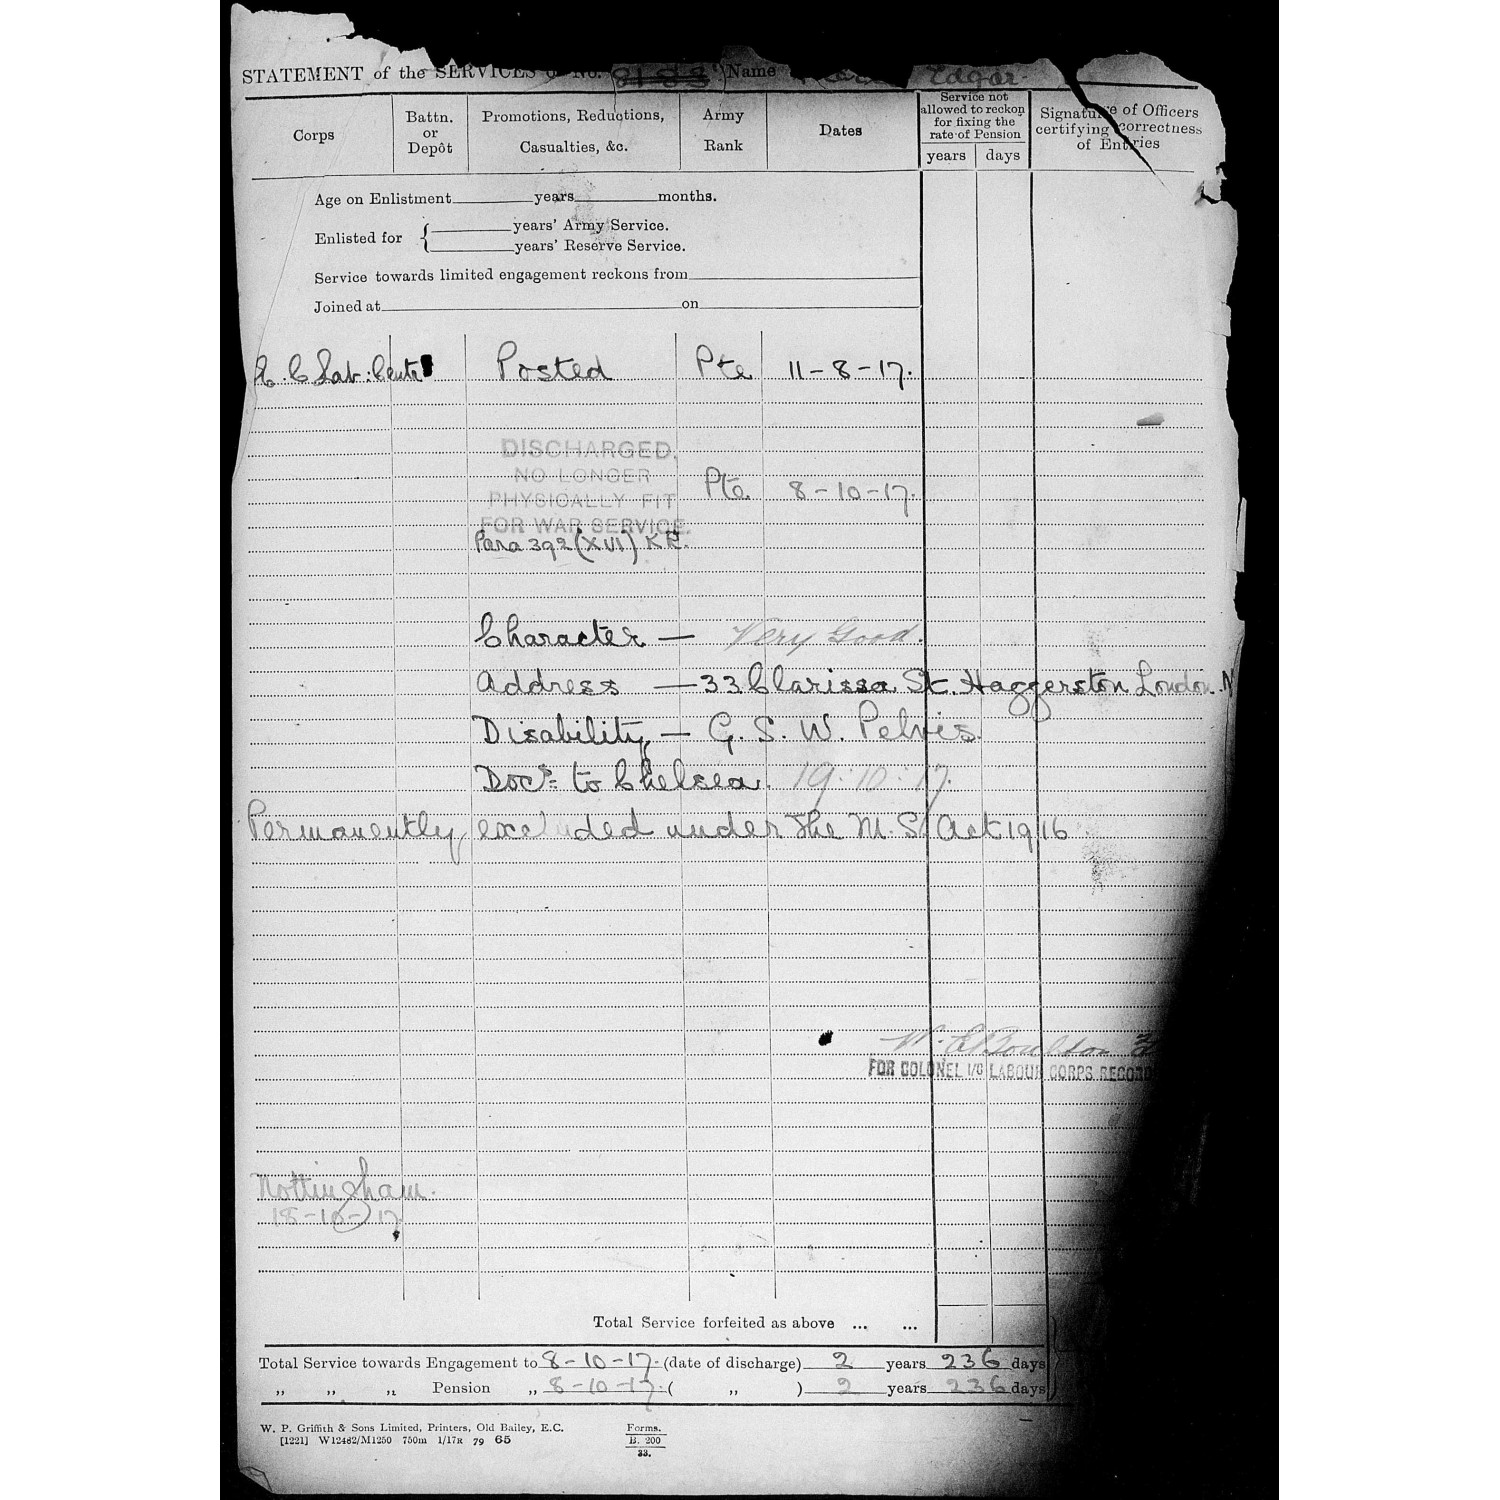 STATEMENT of the SERVICES of No. Name Edgar.
Corps
Battn. or Depôt
Promotions, Reductions, Casualties, &c.
Army Rank
Dates
Service not allowed to reckon for fixing the rate of Pension
years days
Signature of Officers certifying correctness of Entries
Age on Enlistment years months.
Enlisted for { years' Army Service.
years' Reserve Service.
Service towards limited engagement reckons from
Joined at on
E. C Lab. Centre Posted Pte 11-8-17.
DISCHARGED.
NO LONGER
PHYSICALLY FIT Pte. 8-10-17.
FOR WAR SERVICE.
Para 392 (XVI) K.R.
Character — Very Good.
Address — 33 Clarissa St. Haggerston London. N
Disability — G. S. W. Pelvis.
Docs. to Chelsea. 19.10.17.
Permanently excluded under the M. S. Act 1916
FOR COLONEL I/C LABOUR CORPS RECORD
Nottingham.
18-10-17
Total Service forfeited as above ... ...
Total Service towards Engagement to 8-10-17. (date of discharge) 2 years 236 days
„ „ „ Pension „ 8-10-17. ( „ ) 2 years 236 days
W. P. Griffith & Sons Limited, Printers, Old Bailey, E.C.
[1221] W12482/M1250 750m 1/17R 79 65
Forms.
B. 200
33.